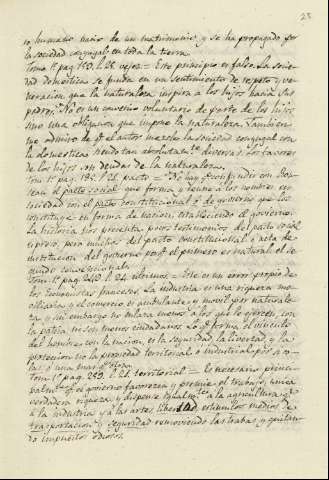 23
ro humano nació de un matrimonio, y se ha propagado por
la sociedad conyugal en toda la tierra.
Tomo 1º pag. 180. l. 28 vejez = Este principio es falso. La socie-
dad domestica se funda en un sentimiento de respeto y ve-
neracion que la naturaleza inspira a los hijos hacia sus
padres. No es un convenio voluntario de parte de los hijos
sino una obligacion que impone la naturaleza. Tambien
me admiro de qe el autor mezcle la sociedad conyugal con
la domestica siendo tan absolutante diversas. Los favores
de los hijos son deudas de la naturaleza.
Tom. 1º pag. l. 21. pacto = No hay qe confundir con Rou-
seau el pacto social que forma y reune a los hombres en
sociedad con el pacto constitucional, o de govierno que los
constituye en forma de nacion, estableciendo el govierno.
La historia nos presenta pocos testimonios del pacto social
o previo, pero muchos del pacto constitucional o acto de
institucion del govierno por qe el primero es natural el se-
gundo convencional.
Tom. 1º pag. l. 24 ultimos = Este es un error propio de
los Economistas franceses. La industria es una riqueza mo-
viliaria y el comercio es ambulante y movil por naturale-
za y sin embargo no enlaza menos a los que lo ejercen, con
la patria ni son menos ciudadanos. Lo qe forma el vinculo
del hombre con la nacion, es la seguridad, la libertad, y la
proteccion no la propiedad territorial o industrial por si so-
las, o una
Tom. 1º pag. l. 21. territorial = Es necesario princi-
palmte qe el govierno favorezca y premie el trabajo, unica
verdadera riqueza y dispense igualmte a la agricultura
a la industria y a las artes, libertad, estimulos medios de
trasportacion y seguridad removiendo las trabas y quitan-
do impuestos odiosos.